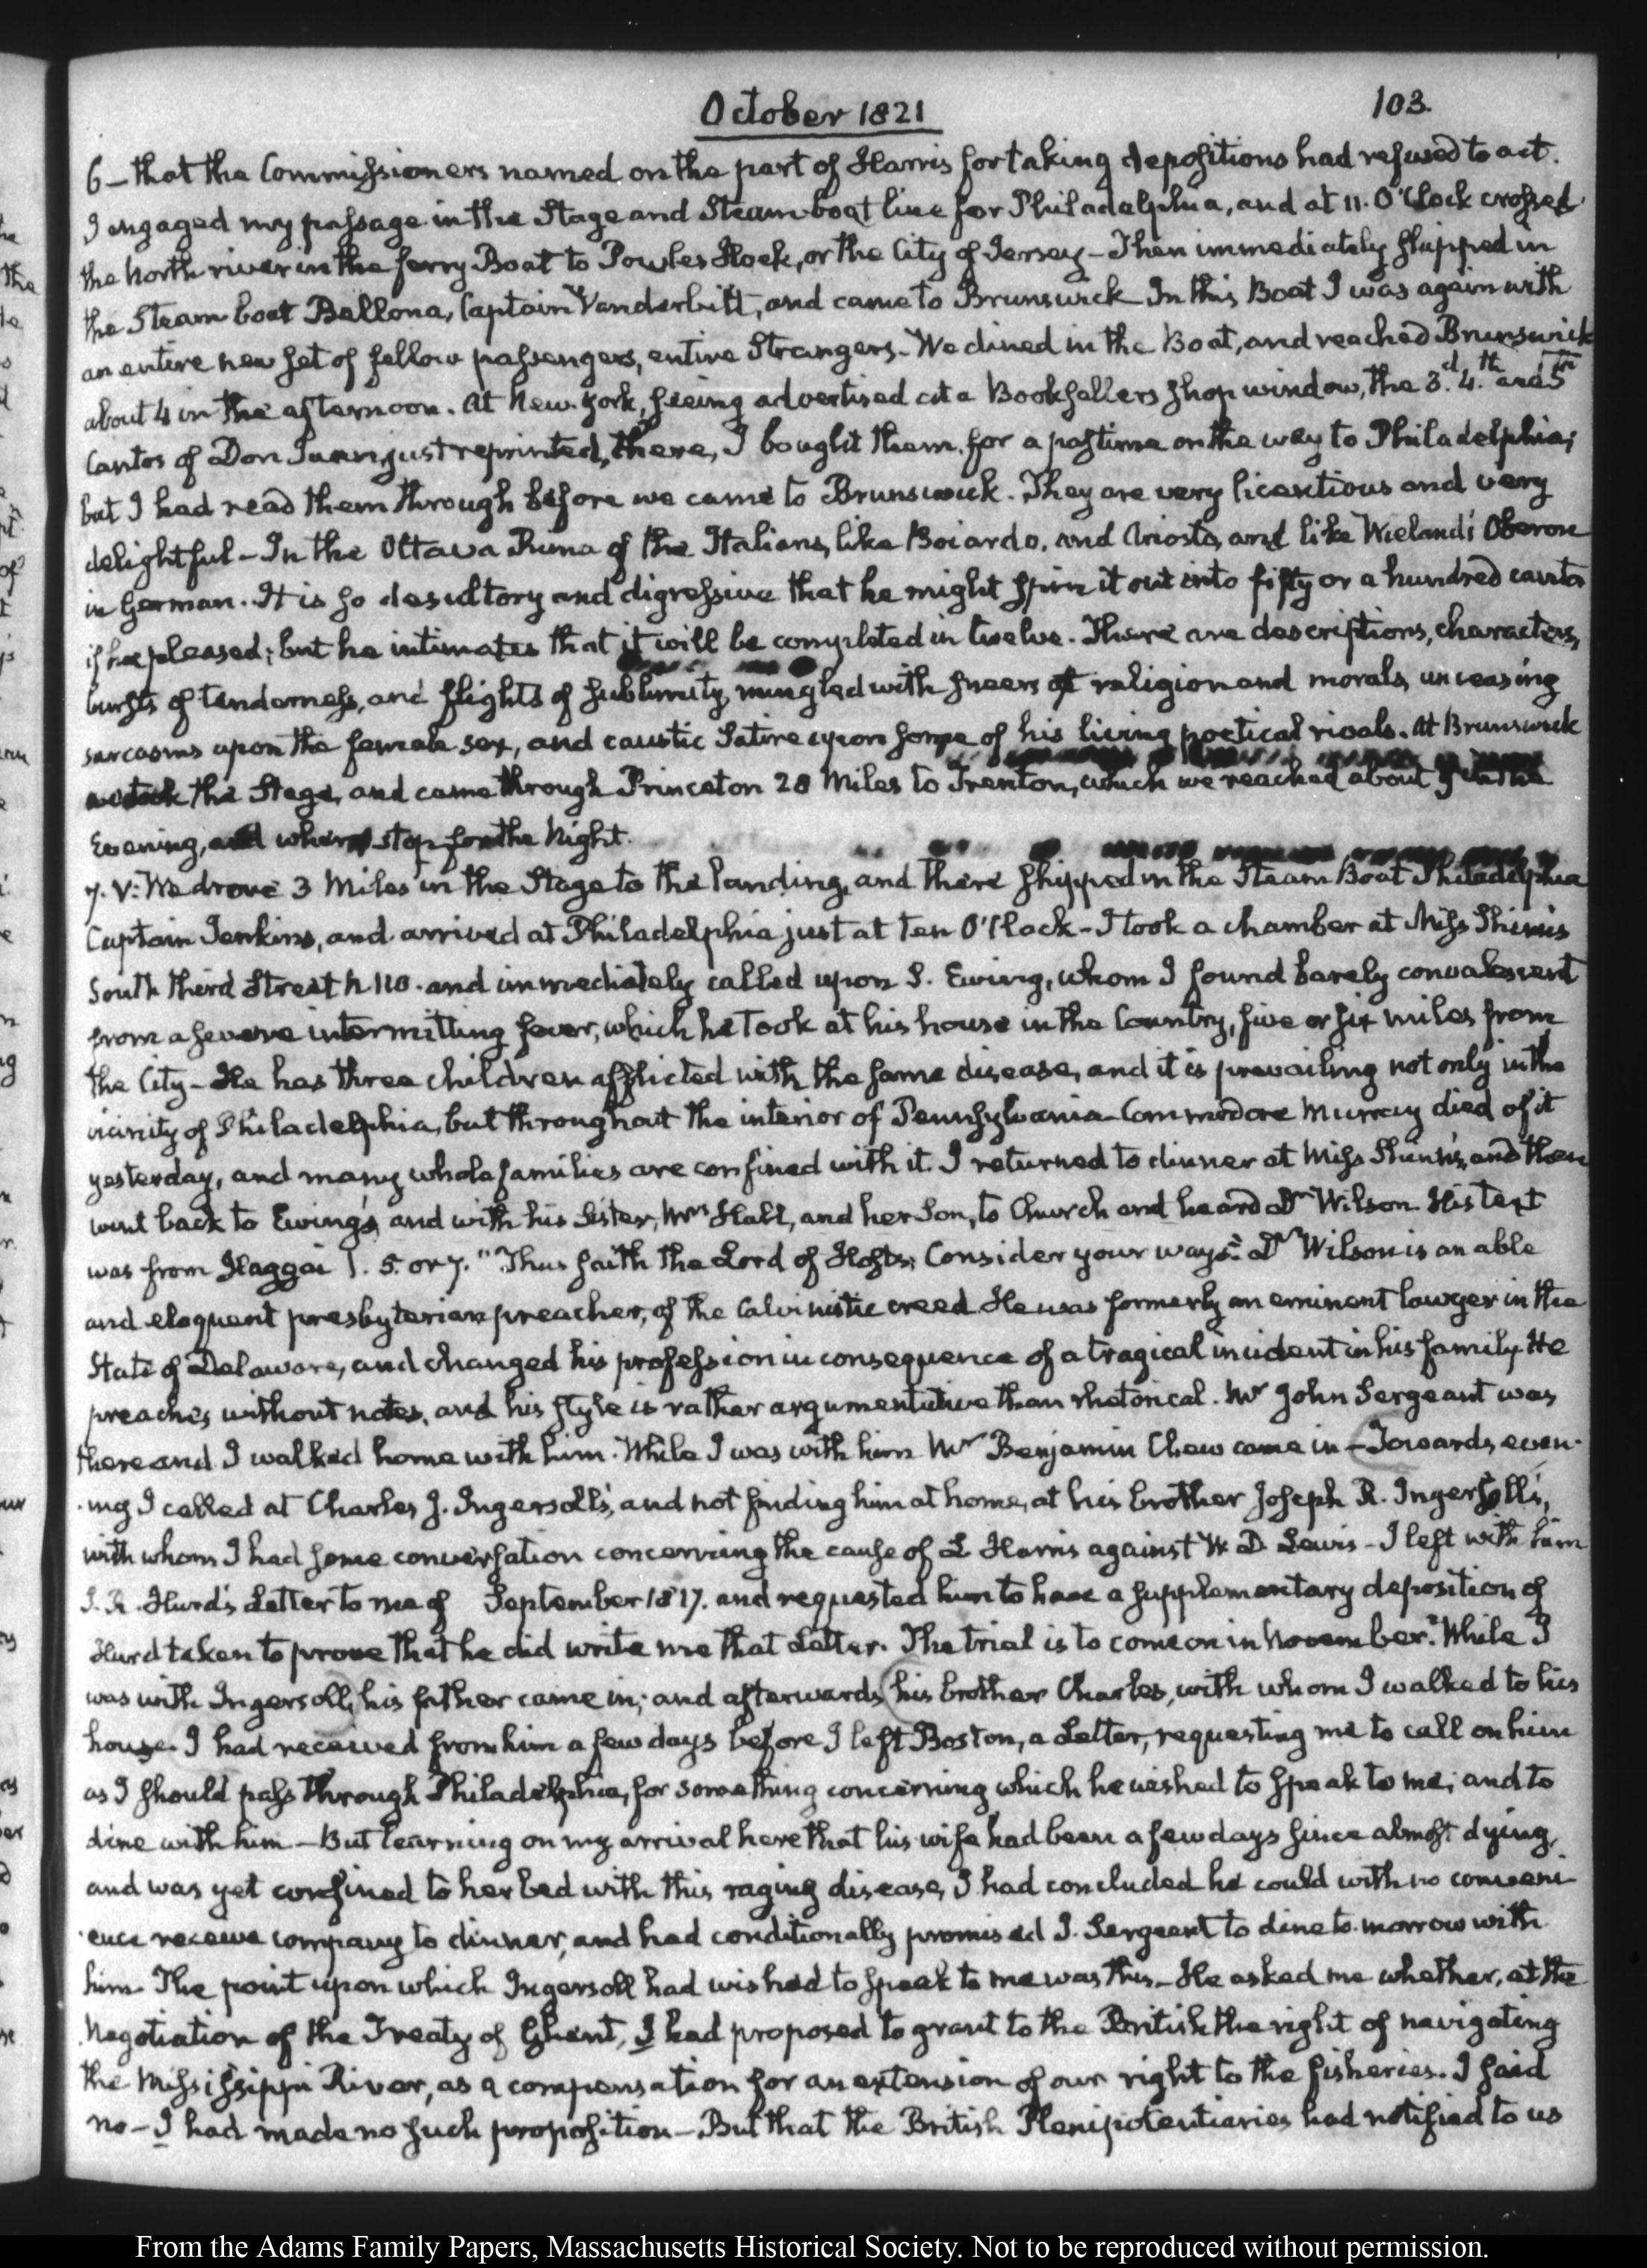 October 1821
103.
6 – that the Commissioners named on the part of Harris for taking depositions had refused to act.
I engaged my passage in the Stage and Steam-boat line for Philadelphia, and at 11. O'Clock crossed
the North river in the ferry Boat to Powles Hook, or the City of Jersey – Then immediately shipped in
the Steam boat Bellona, Captain Vanderbilt, and came to Brunswick In this Boat I was again with
an entire new set of fellow passengers, entire Strangers – We dined in the Boat, and reached Brunswick
about 4 in the afternoon. At New-York, seeing advertised at a Booksellers shop window, the 3.d 4.th and 5th
Cantos of Don Juan, just reprinted, there, I bought them, for a pastime on the way to Philadelphia;
but I had read them through before we came to Brunswick. They are very licentious and very
delightful – In the Ottava Rima of the Italians, like Boiardo, and Ariosto, and like Wieland's Oberon
in German. It is so desultory and digressive that he might spin it out into fifty or a hundred cantos
if he pleased; but he intimates that it will be completed in twelve. There are descriptions, characters,
bursts of tenderness, and flights of sublimity, mingled with sneers at religion and morals, unceasing
sarcasms upon the female sex, and caustic Satire upon some of his living poetical rivals. At Brunswick
we took the Stage, and came through Princeton 28 Miles to Trenton, which we reached about 9 in the
Evening, and where stop for the Night.
7. V: We drove 3 Miles in the Stage to the landing, and there shipped in the Steam Boat Philadelphia
Captain Jenkins, and arrived at Philadelphia just at ten O'Clock – I took a chamber at Miss Shinn's
South third Street N 110. and immediately called upon S. Ewing, whom I found barely convalescent
from a severe intermitting fever, which he took at his house in the Country, five or six miles from
the City – He has three children afflicted with the same disease, and it is prevailing not only in the
vicinity of Philadelphia, but throughout the interior of Pennsylvania – Commodore Murray died of it
yesterday, and many whole families are confined with it. I returned to dinner at Miss Shinn's, and then
went back to Ewing's, and with his Sister, Mrs Hall, and her Son, to Church and heard Dr Wilson. His text
was from Haggai 1. 5. or 7. "Thus saith the Lord of Hosts; Consider your ways." Dr Wilson is an able
and eloquent presbyterian preacher, of the Calvinistic creed. He was formerly an eminent lawyer in the
State of Delaware, and changed his profession in consequence of a tragical incident in his family. He
preaches without notes, and his style is rather argumentative than rhetorical. Mr John Sergeant was
there and I walked home with him. While I was with him Mr Benjamin Chew came in – Towards even-
ing I called at Charles J. Ingersoll's, and not finding him at home, at his brother Joseph R. Ingersoll's,
with whom I had some conversation concerning the cause of L Harris against W. D. Lewis – I left with him
J. R. Hurd's Letter to me of September 1817. and requested him to have a supplementary deposition of
Hurd taken to prove that he did write me that Letter. The trial is to come on in November. While I
was with Ingersoll, his father came in; and afterwards his brother Charles, with whom I walked to his
house. I had received from him a few days before I left Boston, a Letter, requesting me to call on him
as I should pass through Philadelphia, for something concerning which he wished to speak to me; and to
dine with him – But learning on my arrival here that his wife had been a few days since almost dying,
and was yet confined to her bed with this raging disease, I had concluded he could with no conveni-
ence receive company to dinner, and had conditionally promised J. Sergeant to dine to-morrow with
him. The point upon which Ingersoll had wished to speak to me was this – He asked me whether, at the
Negotiation of the Treaty of Ghent, I had proposed to grant to the British the right of navigating
the Mississippi River, as a compensation for an extension of our right to the fisheries. I said
no – I had made no such proposition – But that the British Plenipotentiaries had notified to us
From the Adams Family Papers, Massachusetts Historical Society. Not to be reproduced without permission.